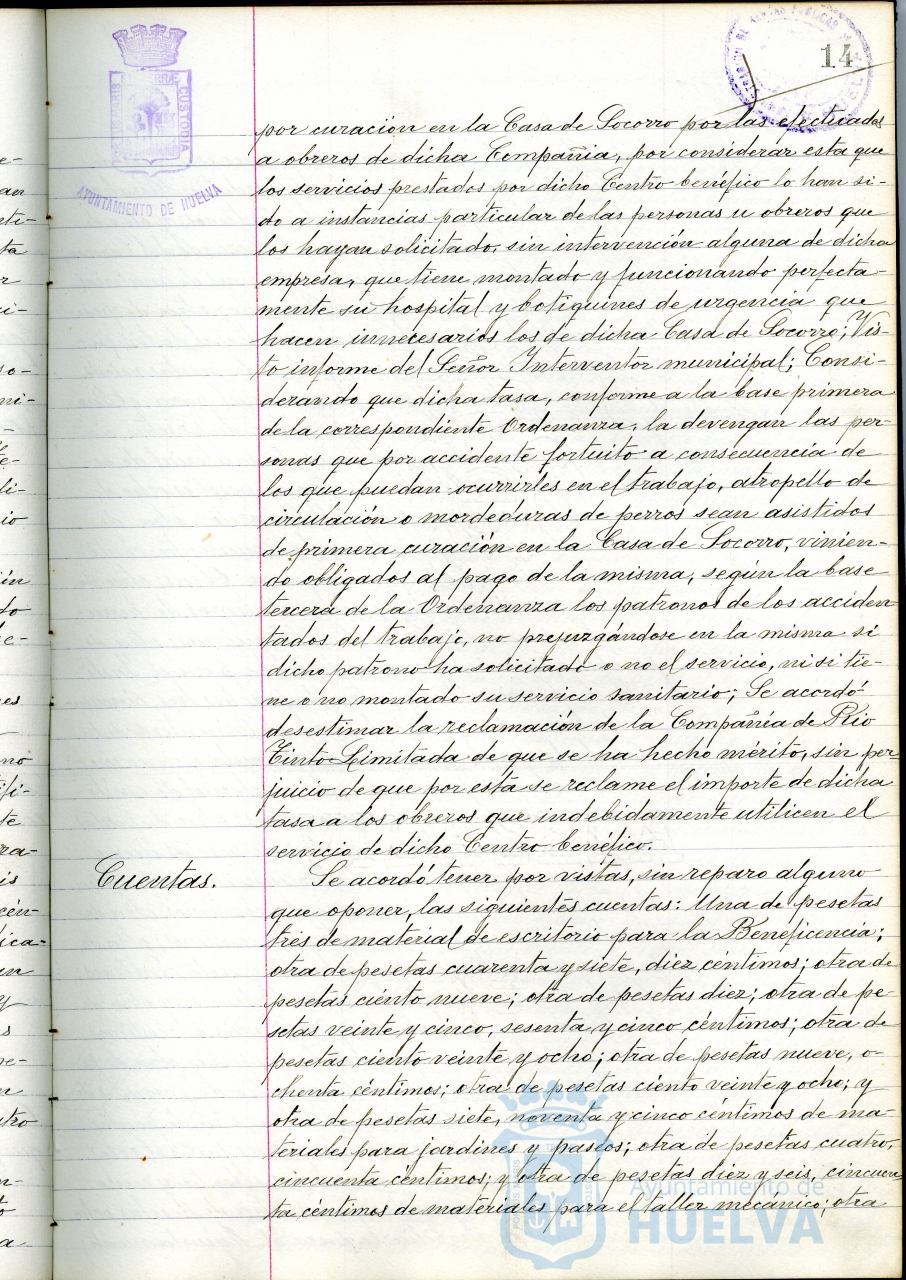 14
AYUNTAMIENTO DE HUELVA
CUSTODIA
por curación en la Casa de Socorro por las efectuadas
a obreros de dicha Compañia, por considerar esta que
los servicios prestados por dicho Centro benéfico lo han si-
do a instancias particular de las personas u obreros que
los hayan solicitado, sin intervención alguna de dicha
empresa, que tiene montado y funcionando perfecta-
mente su hospital y botiquines de urgencia que
hacen innecesarios los de dicha Casa de Socorro; Vis-
to informe del Señor Interventor municipal; Consi-
derando que dicha tasa, conforme a la base primera
de la correspondiente Ordenanza, la devengan las per-
sonas que por accidente fortuito a consecuencia de
los que puedan ocurrirles en el trabajo, atropello de
circulación o mordeduras de perros sean asistidos
de primera curación en la Casa de Socorro, vinien-
do obligados al pago de la misma, según la base
tercera de la Ordenanza los patronos de los acciden-
tados del trabajo, no prejuzgándose en la misma si
dicho patrono ha solicitado o no el servicio, ni si tie-
ne o no montado su servicio sanitario; Se acordó
desestimar la reclamación de la Compañía de Rio
Tinto Limitada de que se ha hecho mérito, sin per-
juicio de que por esta se reclame el importe de dicha
tasa a los obreros que indebidamente utilicen el
servicio de dicho Centro benéfico.
Cuentas.
Se acordó tener por vistas, sin reparo alguno
que oponer, las siguientes cuentas: Una de pesetas
tres de material de escritorio para la Beneficencia;
otra de pesetas cuarenta y siete, diez céntimos; otra de
pesetas ciento nueve; otra de pesetas diez; otra de pe-
setas veinte y cinco, sesenta y cinco céntimos; otra de
pesetas ciento veinte y ocho; otra de pesetas nueve, o-
chenta céntimos; otra de pesetas ciento veinte y ocho; y
otra de pesetas siete, noventa y cinco céntimos de ma-
teriales para jardines y paseos; otra de pesetas cuatro,
cincuenta céntimos; y otra de pesetas diez y seis, cincuen-
ta céntimos de materiales para el taller mecánico; otra
Ayuntamiento de
HUELVA